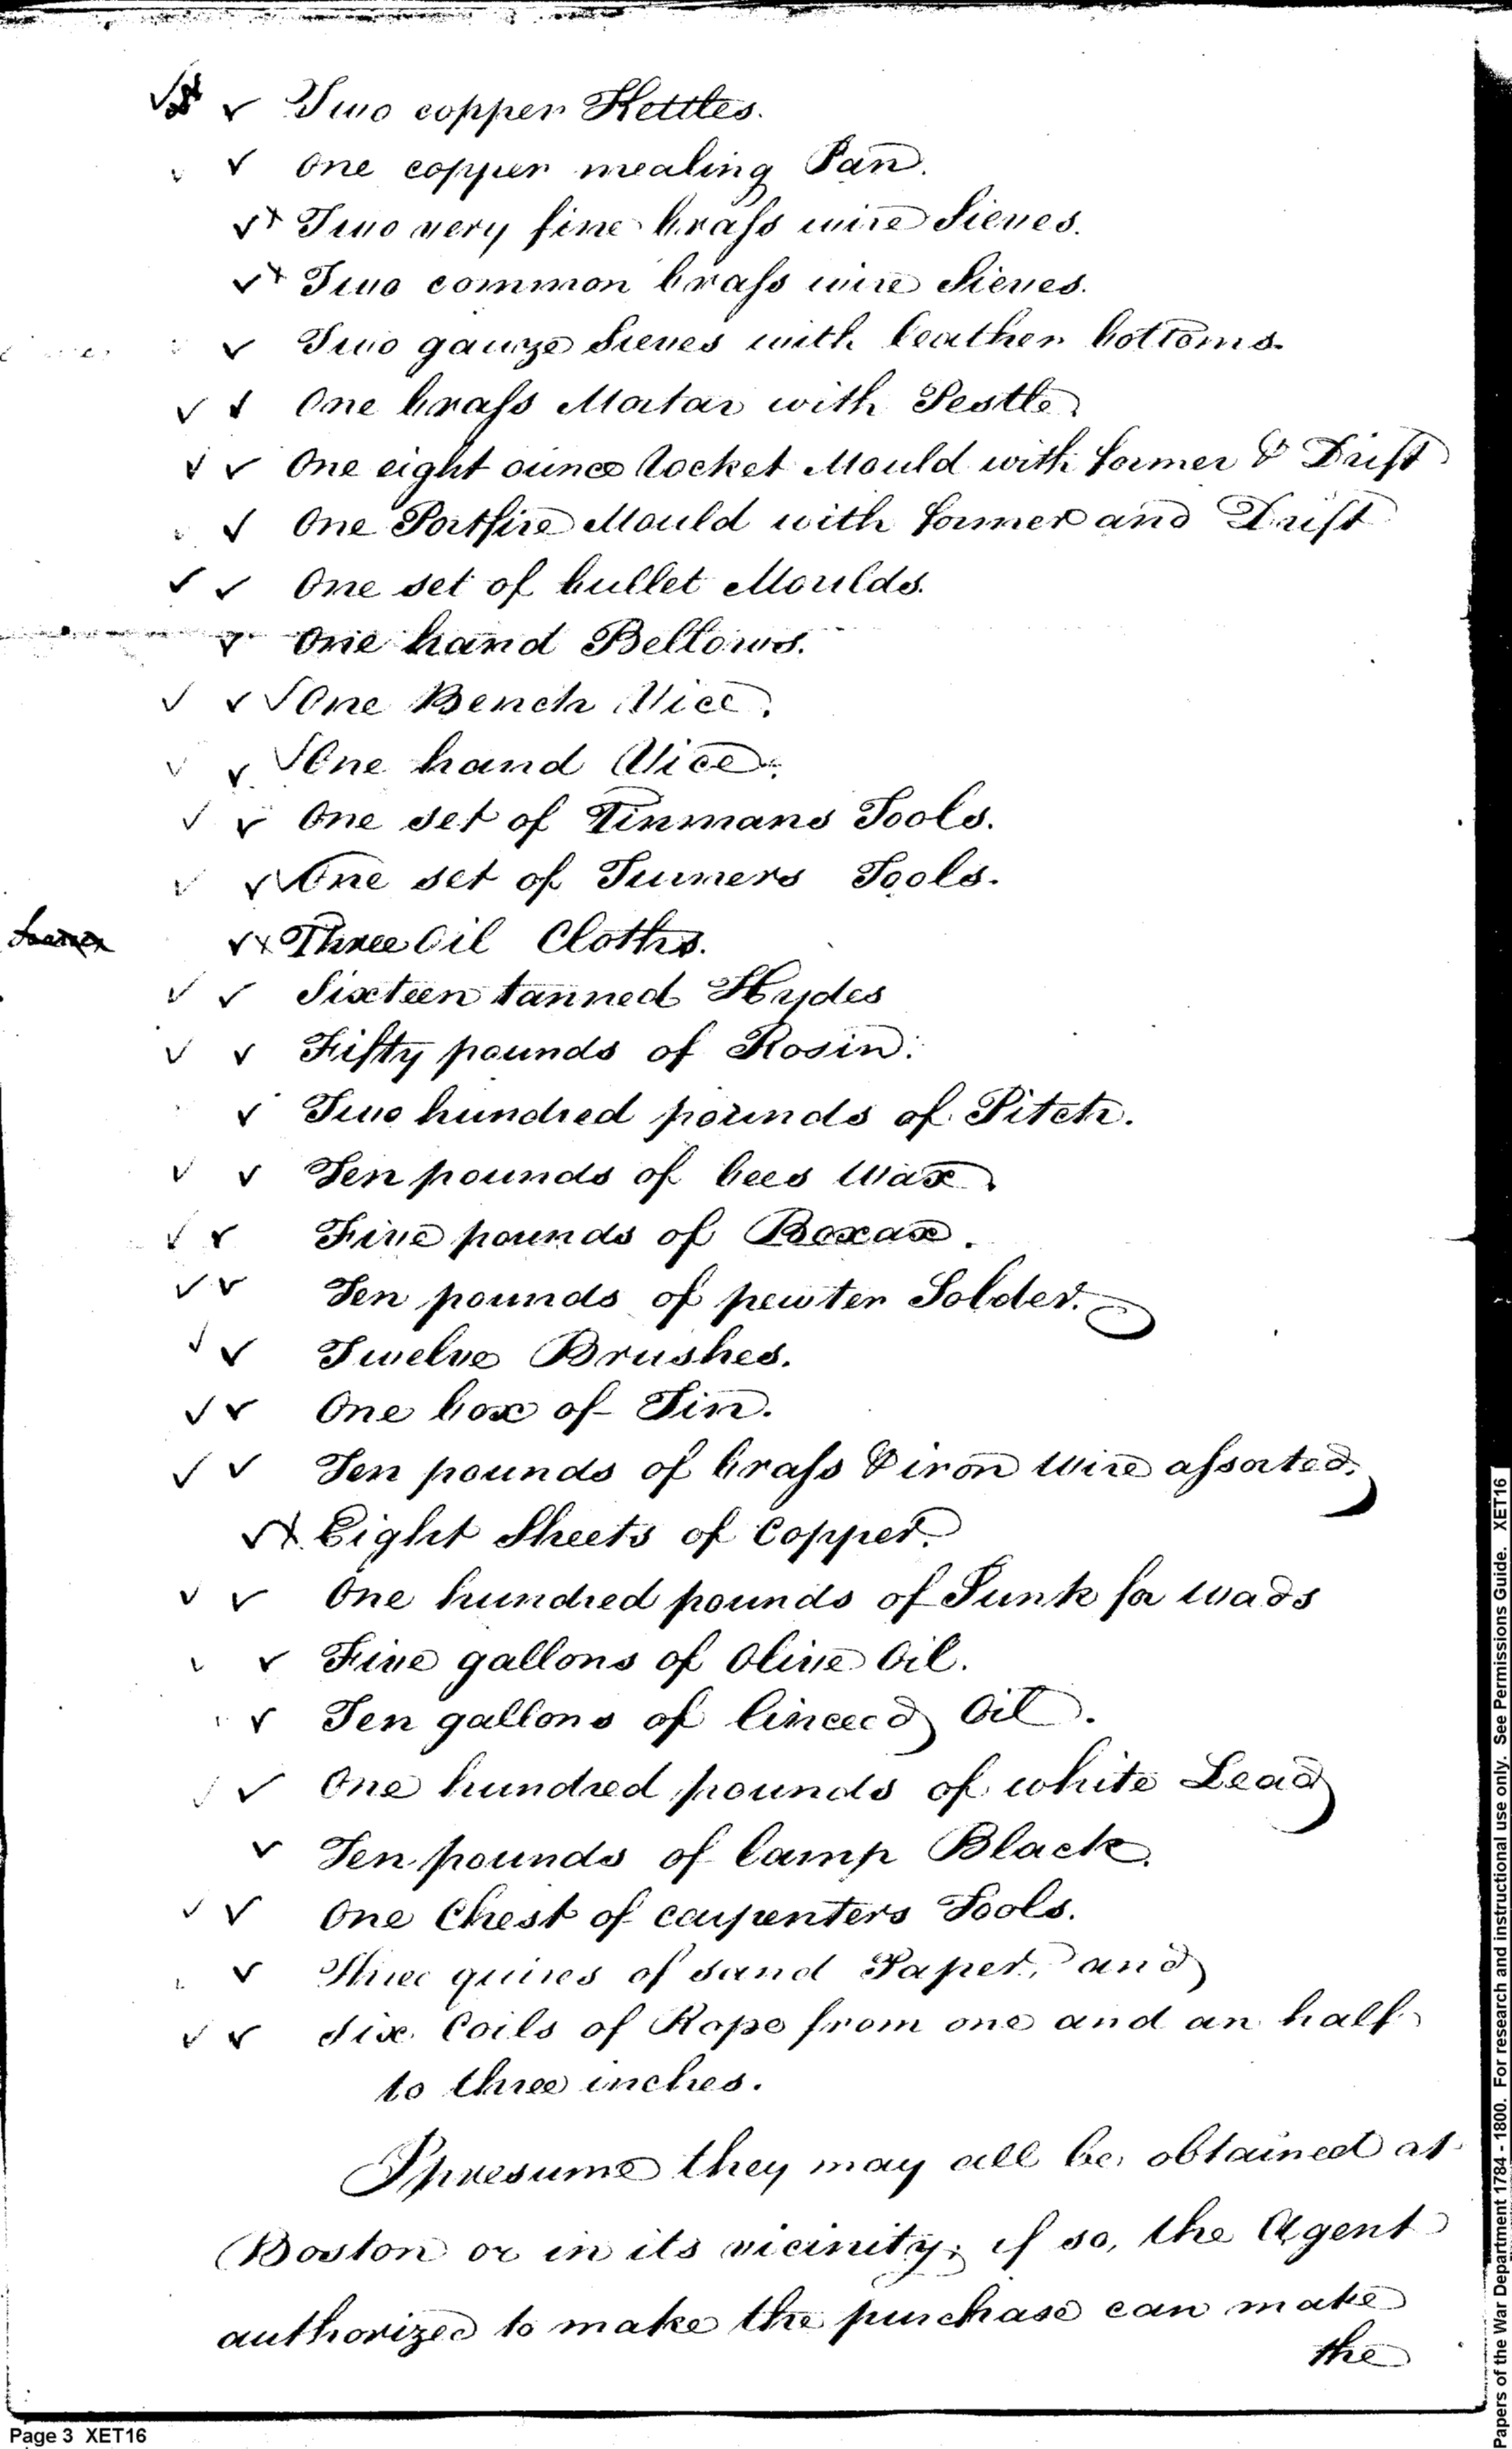 Two copper Kettles.
One copper mealing Pan.
Two very fine brass wire Sieves.
Two common brass wire Sieves.
Two gauze Sieves with leather bottoms.
One brass Mortar with Pestle
One eight ounce Rocket Mould with former & Drift
One Portfire Mould with former and Drift
One set of bullet Moulds.
One hand Bellows.
One Bench Vice.
One hand Vice.
One set of Tinmans Tools.
One set of Turners Tools.
Three Oil Cloths.
Sixteen tanned Hydes
Fifty pounds of Rosin.
Two hundred pounds of Pitch.
Ten pounds of bees Wax.
Five pounds of Boxax.
Ten pounds of pewter Solder.
Twelve Brushes.
One box of Tin.
Ten pounds of brass & iron Wire assorted.
Eight Sheets of Copper.
One hundred pounds of Junk for Wads
Five gallons of Olive Oil.
Ten gallons of linceed Oil.
One hundred pounds of white Lead
Ten pounds of lamp Black.
One Chest of carpenters Tools.
Three quires of sand Paper, and
Six Coils of Rope from one and an half
to three inches.
I presume they may all be obtained at
Boston or in its vicinity; if so, the Agent
authorized to make the purchase can make
the
Page 3 XET16
Papers of the War Department 1784 - 1800. For research and instructional use only. See Permissions Guide. XET16